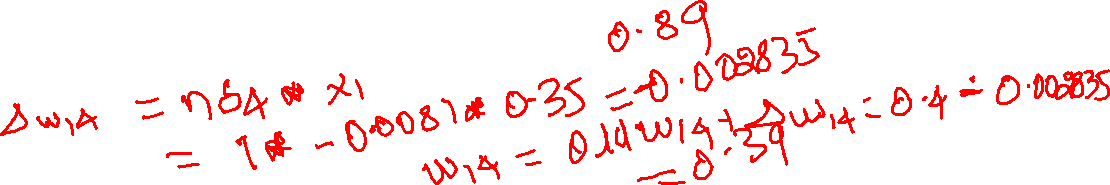 0.89
Δw14 = ηδ4 * x1
= 1 * -0.0081 * 0.35 = -0.002835
w14 = w14 + Δw14 = 0.4 - 0.002835
= 0.39